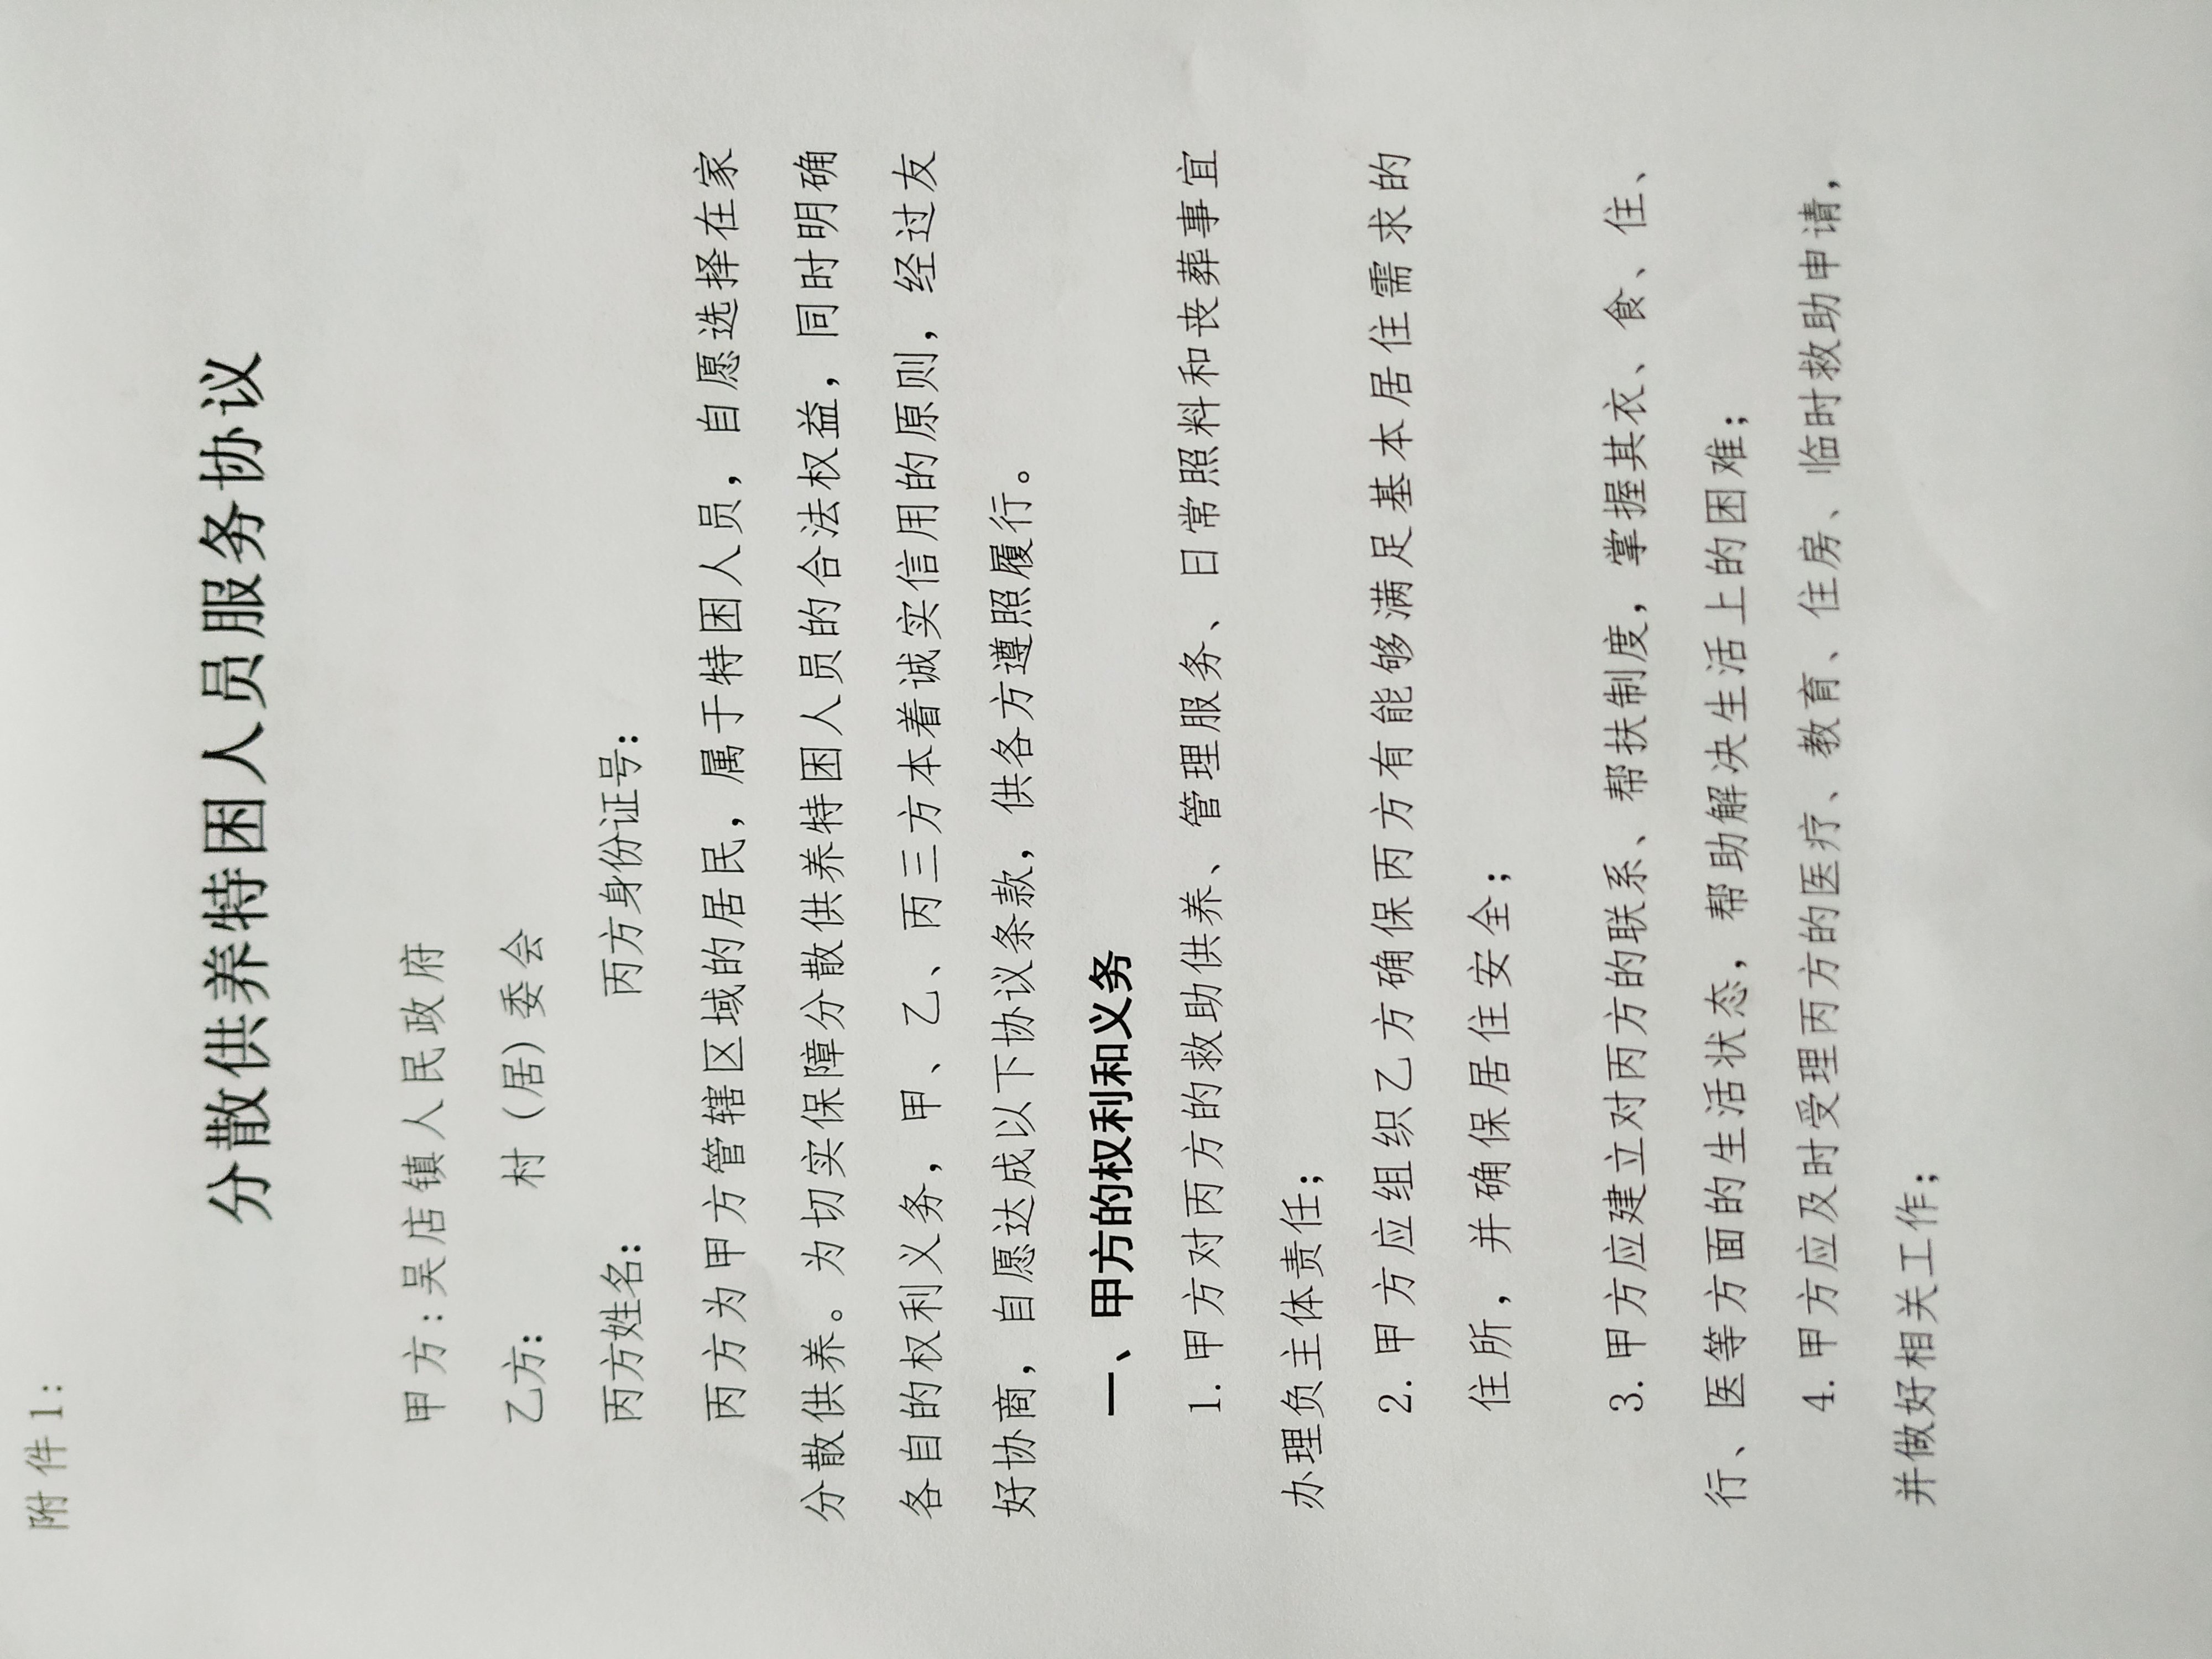 附件1：
分散供养特困人员服务协议
甲方：吴店镇人民政府
乙方： 村（居）委会
丙方姓名： 丙方身份证号：
丙方为甲方管辖区域的居民，属于特困人员，自愿选择在家
分散供养。为切实保障分散供养特困人员的合法权益，同时明确
各自的权利义务，甲、乙、丙三方本着诚实信用的原则，经过友
好协商，自愿达成以下协议条款，供各方遵照履行。
一、甲方的权利和义务
1. 甲方对丙方的救助供养、管理服务、日常照料和丧葬事宜
办理负主体责任；
2. 甲方应组织乙方确保丙方有能够满足基本居住需求的
住所，并确保居住安全；
3. 甲方应建立对丙方的联系、帮扶制度，掌握其衣、食、住、
行、医等方面的生活状态，帮助解决生活上的困难；
4. 甲方应及时受理丙方的医疗、教育、住房、临时救助申请，
并做好相关工作；